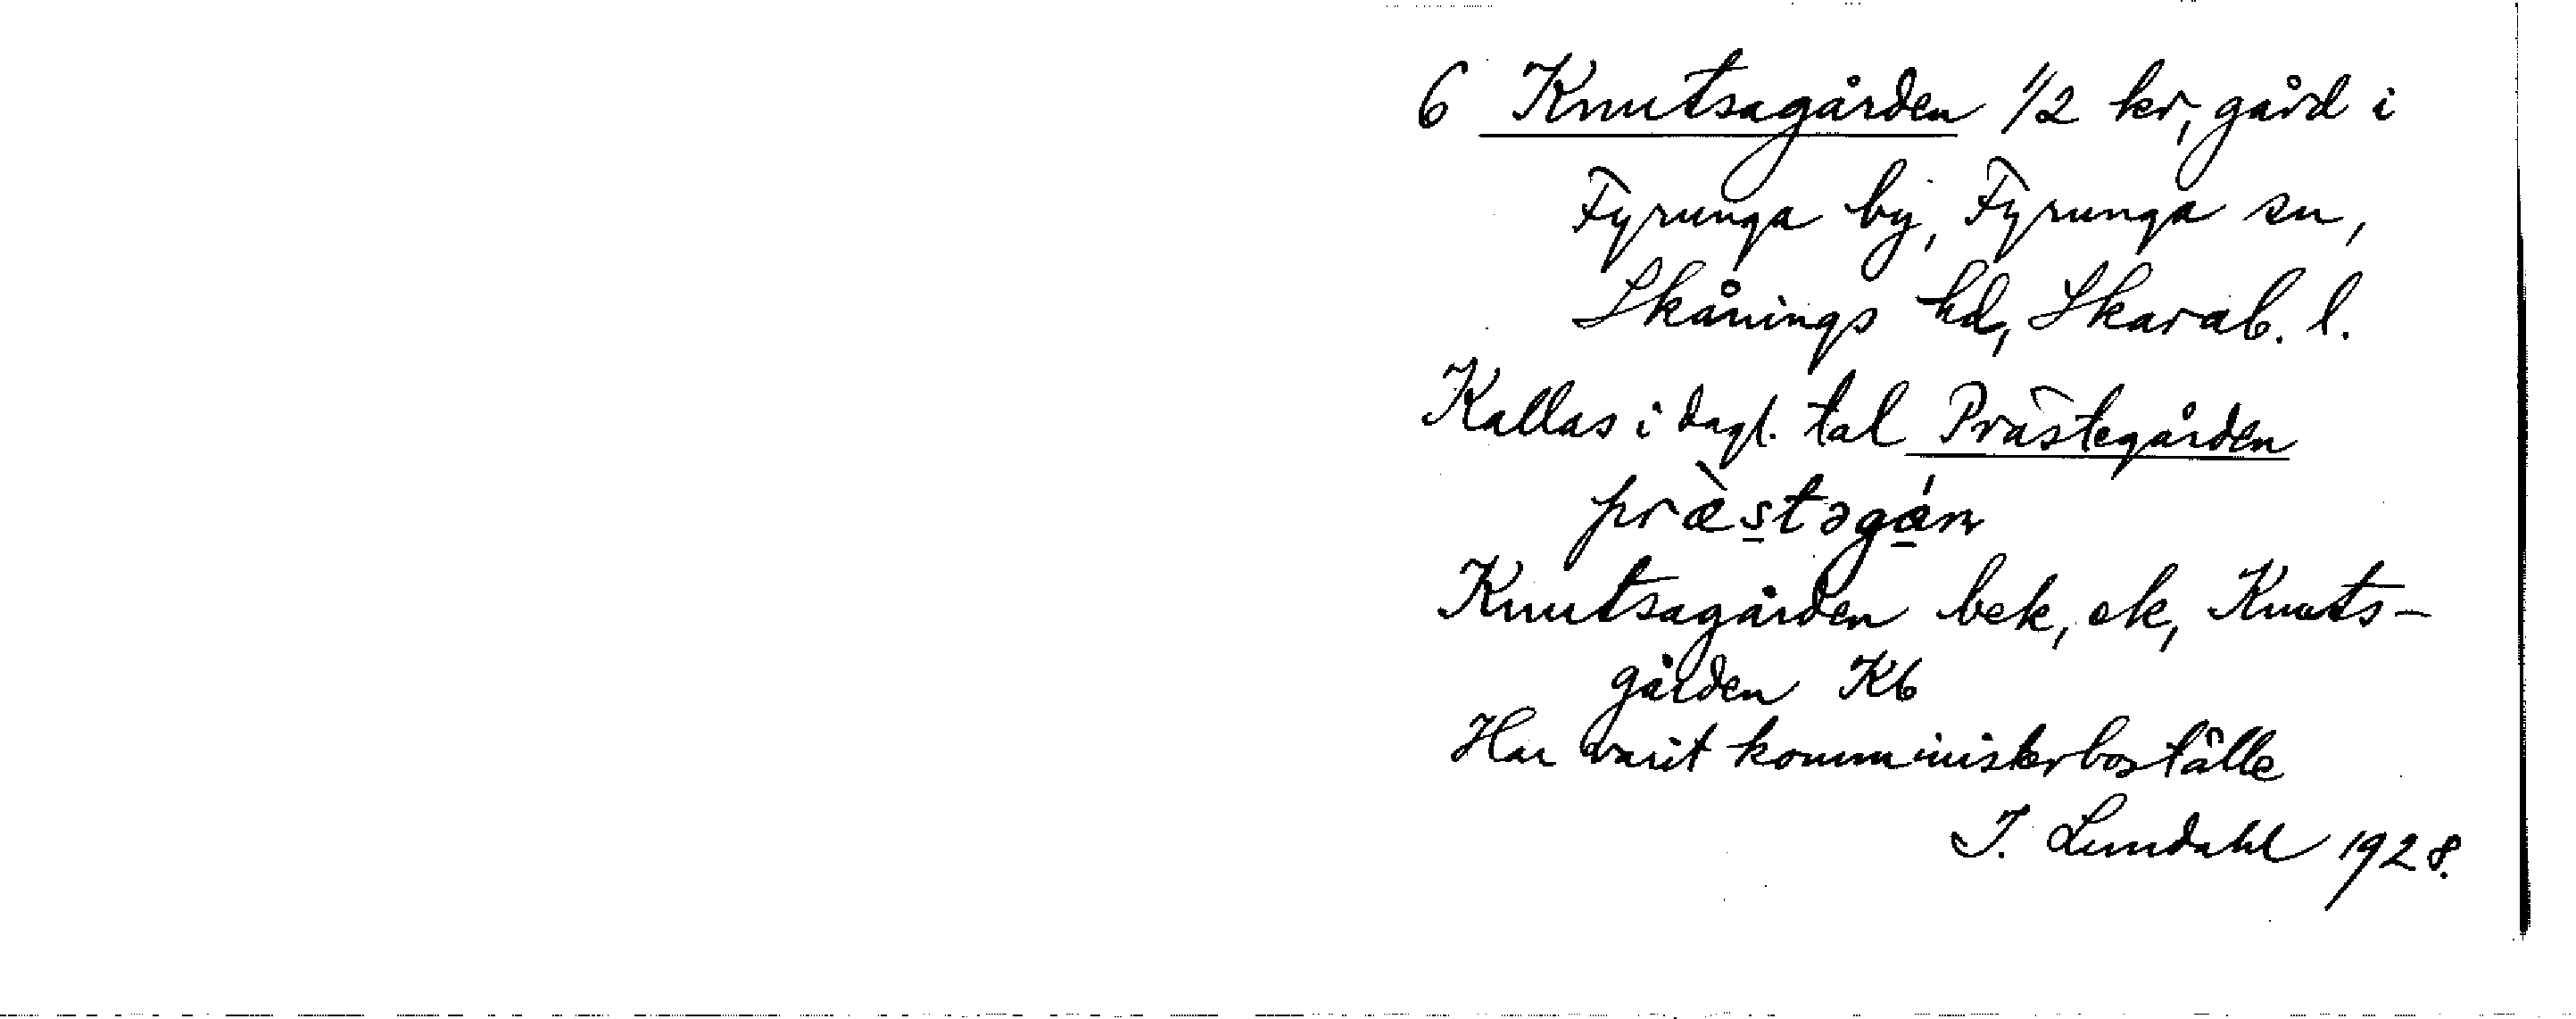 6 Knutsagården 1/2 kr, gård i
Fyrunga by, Fyrunga sn,
Skånings hd, Skarab. l.
Kallas i dagl. tal Prästegården
præ̀stəgán
Knutsagården bek, ek, Knuts-
gården Kb
Har varit komministerboställe
I. Lundahl 1928.